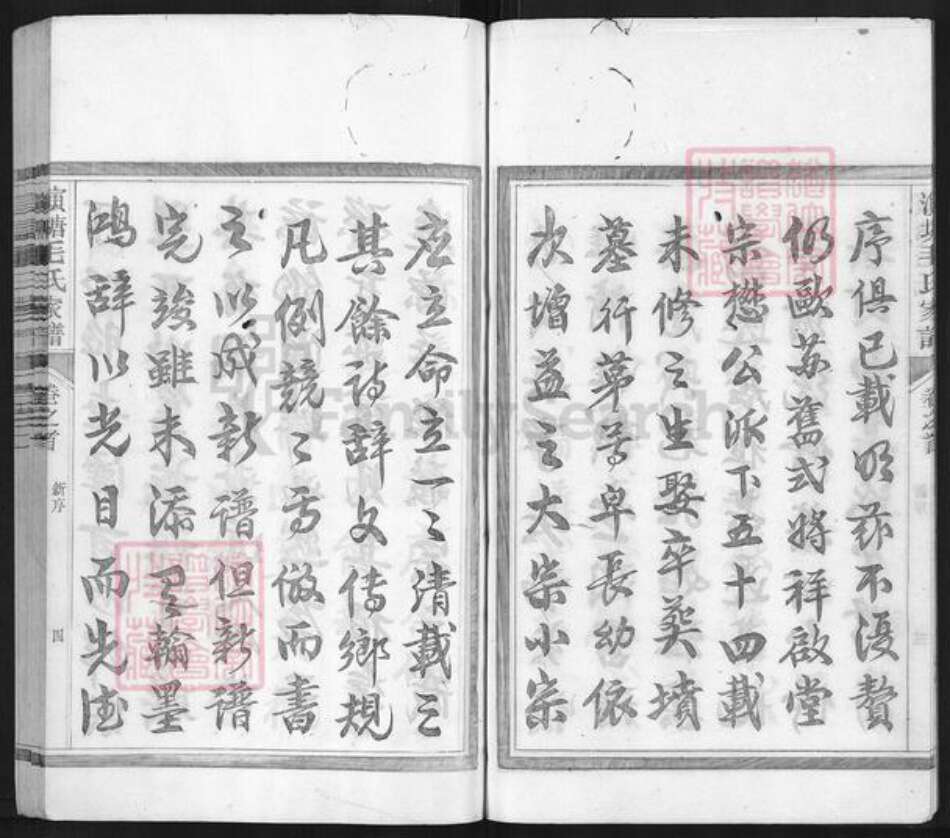 序俱已載明茲不復贅
仍歐蘇舊式將祥啟堂
宗懋公派下五十四載
未修之生娶卒葬墳
墓行第尊卑長幼依
次增益之大宗小宗
應立命立一一清載之
其餘詩辭文傳鄉規
凡例競競焉倣而書
之以成新譜但新譜
完竣雖未添翰墨
鴻辭以光目而先德
演塘毛氏家譜
卷之首
新序
四
FamilySearch